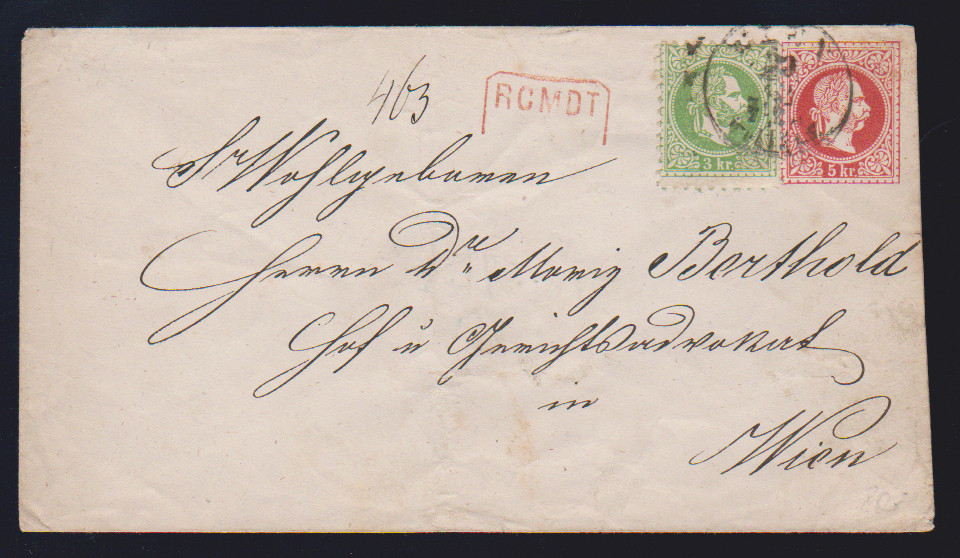 463
RCMDT
3 kr.
5 kr.
Sr Wohlgeboren
Herrn Dr. Moriz Berthold
Hof u Gerichtsadvokat
in
Wien